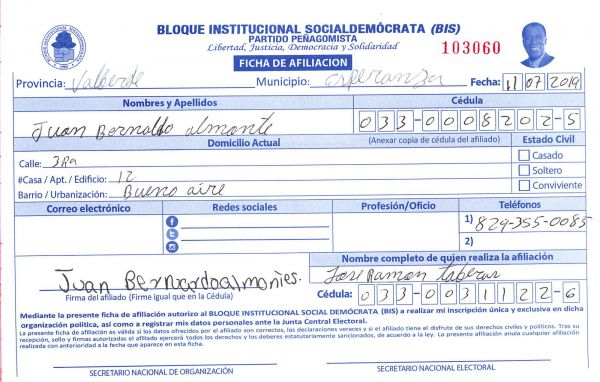 BLOQUE INSTITUCIONAL SOCIALDEMÓCRATA (BIS)
PARTIDO PEÑAGOMISTA
Libertad, Justicia, Democracia y Solidaridad
103060
FICHA DE AFILIACION
Provincia: Valverde Municipio: Esperanza Fecha: 11 07 2019
Nombres y Apellidos Cédula
Juan Bernaldo almonte 033-0008202-5
Domicilio Actual (Anexar copia de cédula del afiliado) Estado Civil
Calle: 3Ra Casado
#Casa / Apt. / Edificio: 12 Soltero
Barrio / Urbanización: Bueno aire Conviviente
Correo electrónico Redes sociales Profesión/Oficio Teléfonos
1) 829-355-0085
2)
Nombre completo de quien realiza la afiliación
Juan Bernardo almonies. Jose Ramon
Firma del afiliado (Firme igual que en la Cédula) Cédula: 033-0031122-6
Mediante la presente ficha de afiliación autorizo al BLOQUE INSTITUCIONAL SOCIAL DEMÓCRATA (BIS) a realizar mi inscripción única y exclusiva en dicha
organización política, así como a registrar mis datos personales ante la Junta Central Electoral.
La presente ficha de afiliación es válida si los datos ofrecidos por el afiliado son correctos, las declaraciones veraces y si el afiliado tiene el disfrute de sus derechos civiles y políticos. Tras su
recepción, sello y firmas autorizadas el afiliado ejercerá todos los derechos y los deberes estatutariamente sancionados, de acuerdo a la ley. La presente afiliación anula cualquier afiliación
realizada con anterioridad a la fecha que aparece en esta ficha.
SECRETARIO NACIONAL DE ORGANIZACIÓN SECRETARIO NACIONAL ELECTORAL